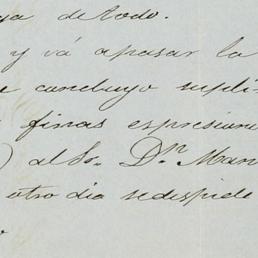 de todo.
y vá apasar la
concluyo supli
finas espresion
al Sr. Dn. Man
otro dia sedespide